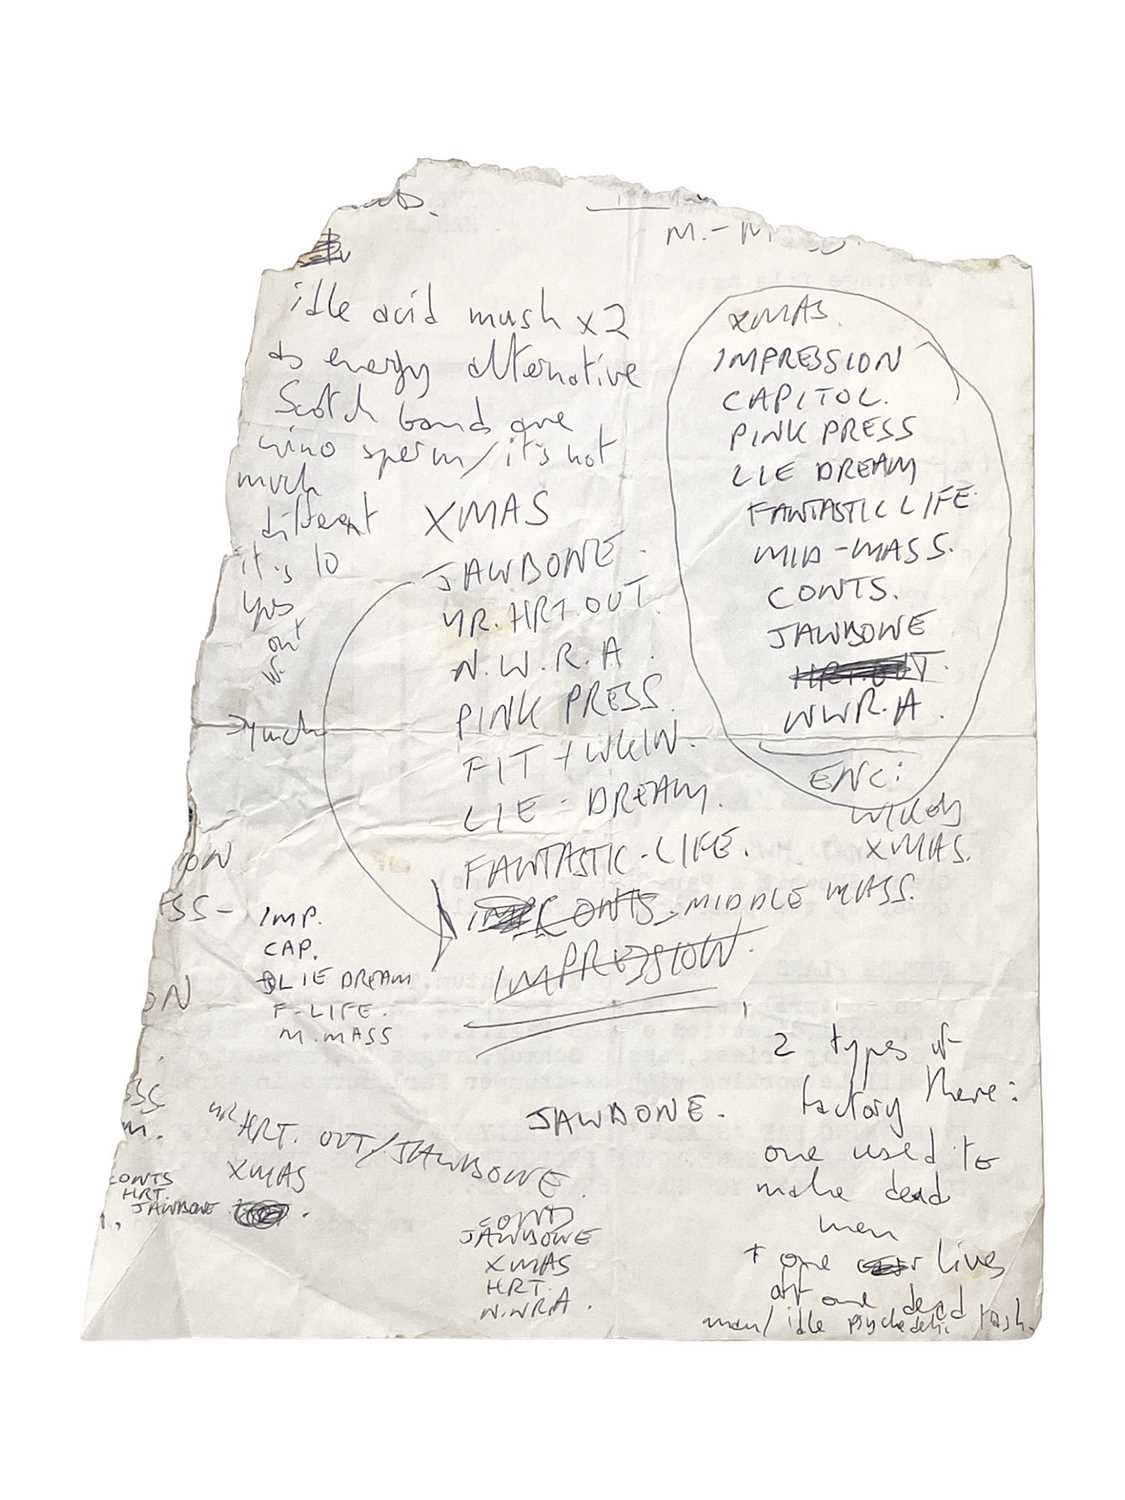 M.-M
idle acid mush x2
as energy alternative
Scotch bands are
wino sperm/it's not
much
different
it's 10
yrs
out
XMAS
JAWBONE.
YR. HRT. OUT.
N.W.R.A.
PINK PRESS.
FIT + WKIN.
LIE - DREAM.
FANTASTIC - LIFE.
CONTS. MIDDLE MASS.
IMPRESSION.
XMAS.
IMPRESSION
CAPITOL.
PINK PRESS
LIE DREAM
FANTASTIC LIFE
MID-MASS.
CONTS.
JAWBONE
HRT. OUT.
NWR.A.
ENC:
XMAS.
ON
ESS - IMP.
CAP.
LIE DREAM
F-LIFE.
M. MASS
ON
SS
M.
YR HRT. OUT/JAWBONE.
XMAS
CONTS
HRT.
JAWBONE
JAWBONE.
JAWBONE
XMAS
HRT.
N.WRA.
2 types of
factory there:
one used to
make dead
men
+ one lives
off one dead
man/ idle psychedelic